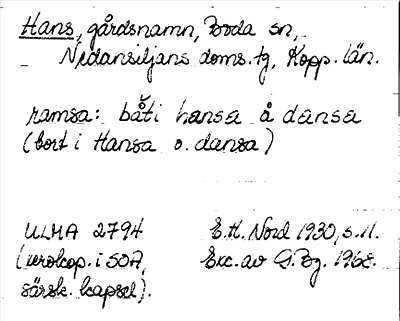 Hans, gårdsnamn, Boda sn,
Nedansiljans doms. tg, Kopp. län.
ramsa: båti hansa å dansa
(bort i Hansa o. dansa)
ULMA 2794 E.H. Nord 1930, s. 11.
(xerokop. i SOA, Exc. av G. Bg. 1968.
särsk. kapsel).